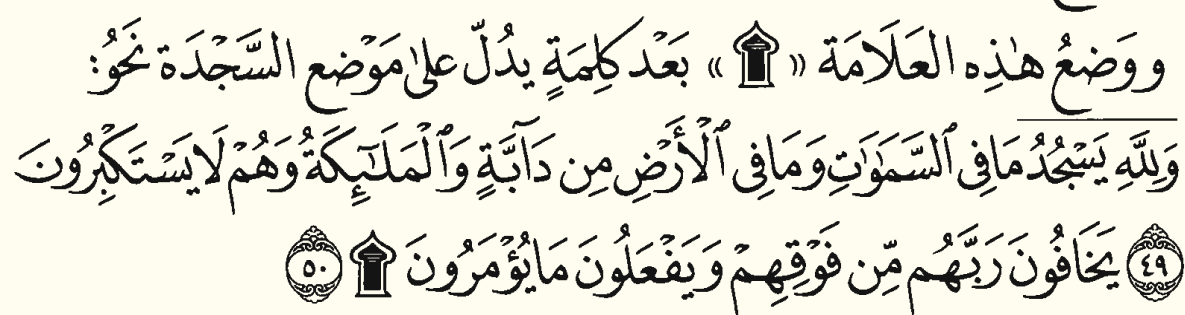 ووَضعُ هٰذِه العَلَامَة « ۩ » بَعْد كَلِمَةٍ يدُلّ علىٰ مَوْضع السَّجْدَة نَحْوُ:
وَلِلَّهِ يَسْجُدُ مَا فِى ٱلسَّمَٰوَٰتِ وَمَا فِى ٱلْأَرْضِ مِن دَآبَّةٍ وَٱلْمَلَٰٓئِكَةُ وَهُمْ لَا يَسْتَكْبِرُونَ
٤٩ يَخَافُونَ رَبَّهُم مِّن فَوْقِهِمْ وَيَفْعَلُونَ مَا يُؤْمَرُونَ ۩ ٥٠